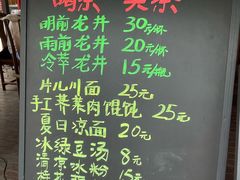 喝茶 头茶
明前龙井 30元/杯
雨前龙井 20元/杯
冷萃龙井 15元/瓶
片儿川面 25元
手工荠菜肉馄饨 25元
夏日凉面 20元
冰绿豆汤 8元
清凉冰粉 15元